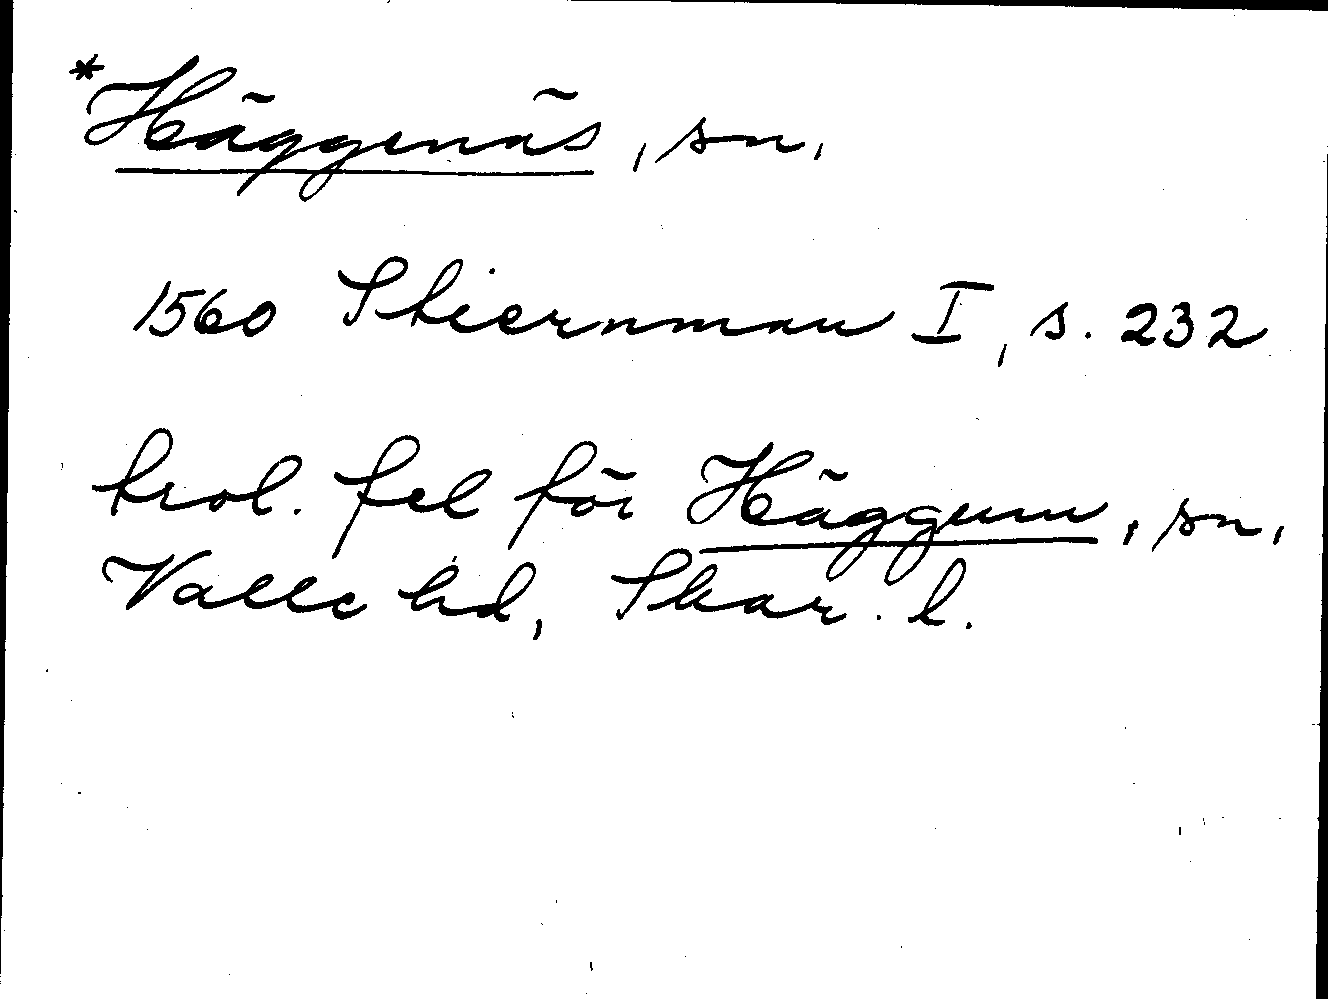 *Häggenäs, sn,
1560 Stiernman I, s. 232
trol. fel för Häggum, sn,
Valle hd, Skar. l.